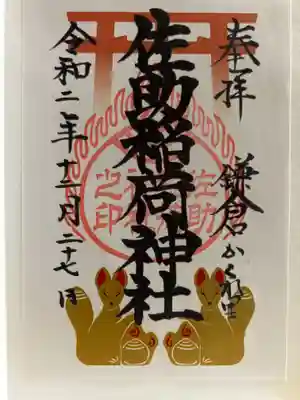 奉拝
鎌倉かくれ里
佐助稲荷神社
令和二年十二月二十七日
佐助
之印